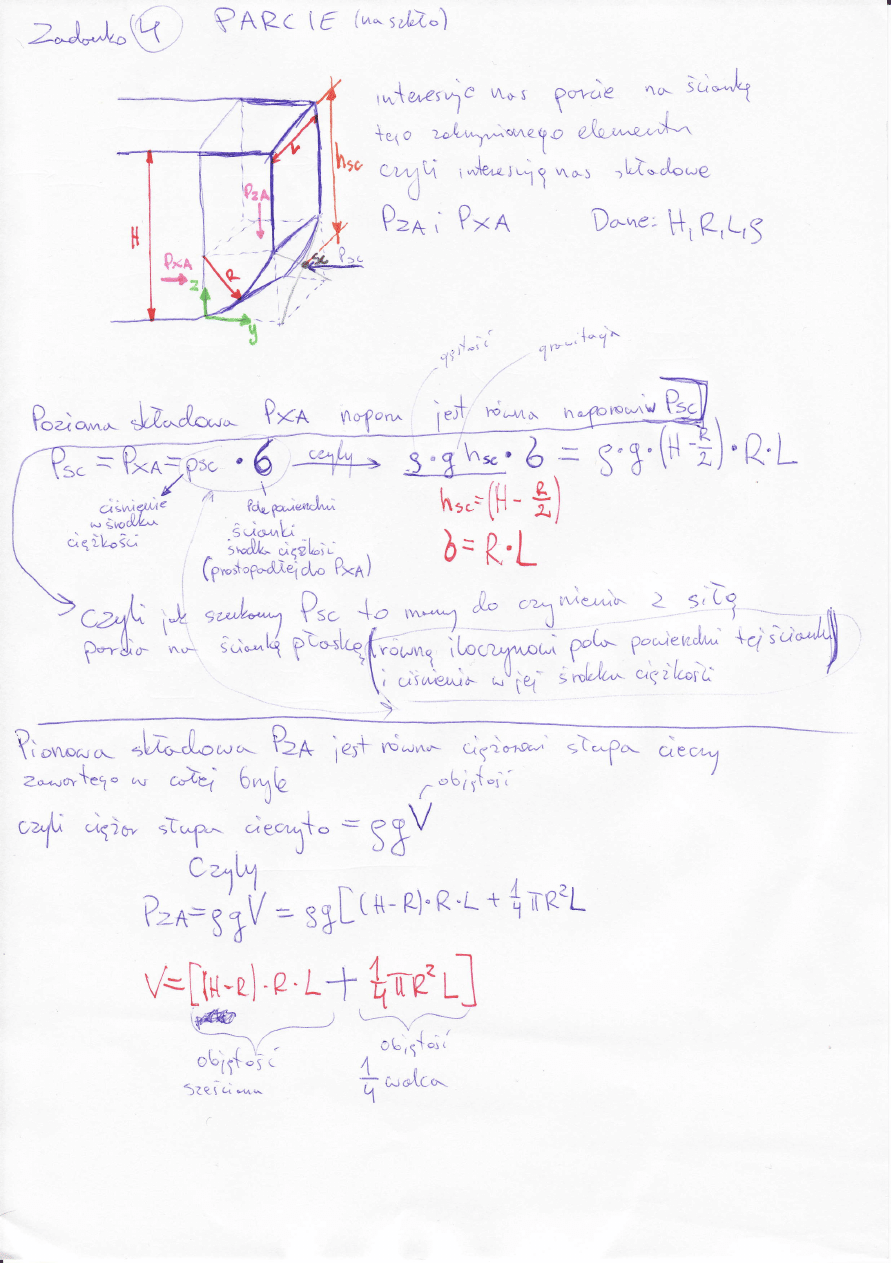 Zadanko 4 PARCIE (na szkło)
interesuje nas parcie na ściankę
tego zakrzywionego elementu
czyli interesują nas składowe
PzA i PxA Dane: H, R, L, ρ
L
hsc
PzA
H
PxA
R
sc
Psc
z
y
gęstość
grawitacja
Pozioma składowa PxA naporu jest równa naporowi Psc
Psc = PxA = psc · б czyly ρ · g hsc · б = ρ · g · (H - R/2) · R · L
hsc = (H - R/2)
б = R · L
ciśnienie
w środku
ciężkości
Pole powierzchni
ścianki
środka ciężkości
(prostopadłej do PxA)
czyli jak szukamy Psc to mamy do czynienia z siłą
parcia na ściankę płaską (równą iloczynowi pola powierzchni tej ścianki
i ciśnienia w jej środku ciężkości)
Pionowa składowa PzA jest równa ciężarowi słupa cieczy
zawartego w całej bryle
objętość
czyli ciężar słupa cieczy to = ρgV
Czyly
PzA = ρgV = ρg[(H-R)·R·L + 1/4 πR²L
V = [(H-R)·R·L + 1/4 πR²L]
objętość
sześcianu
objętość
1/4 walca